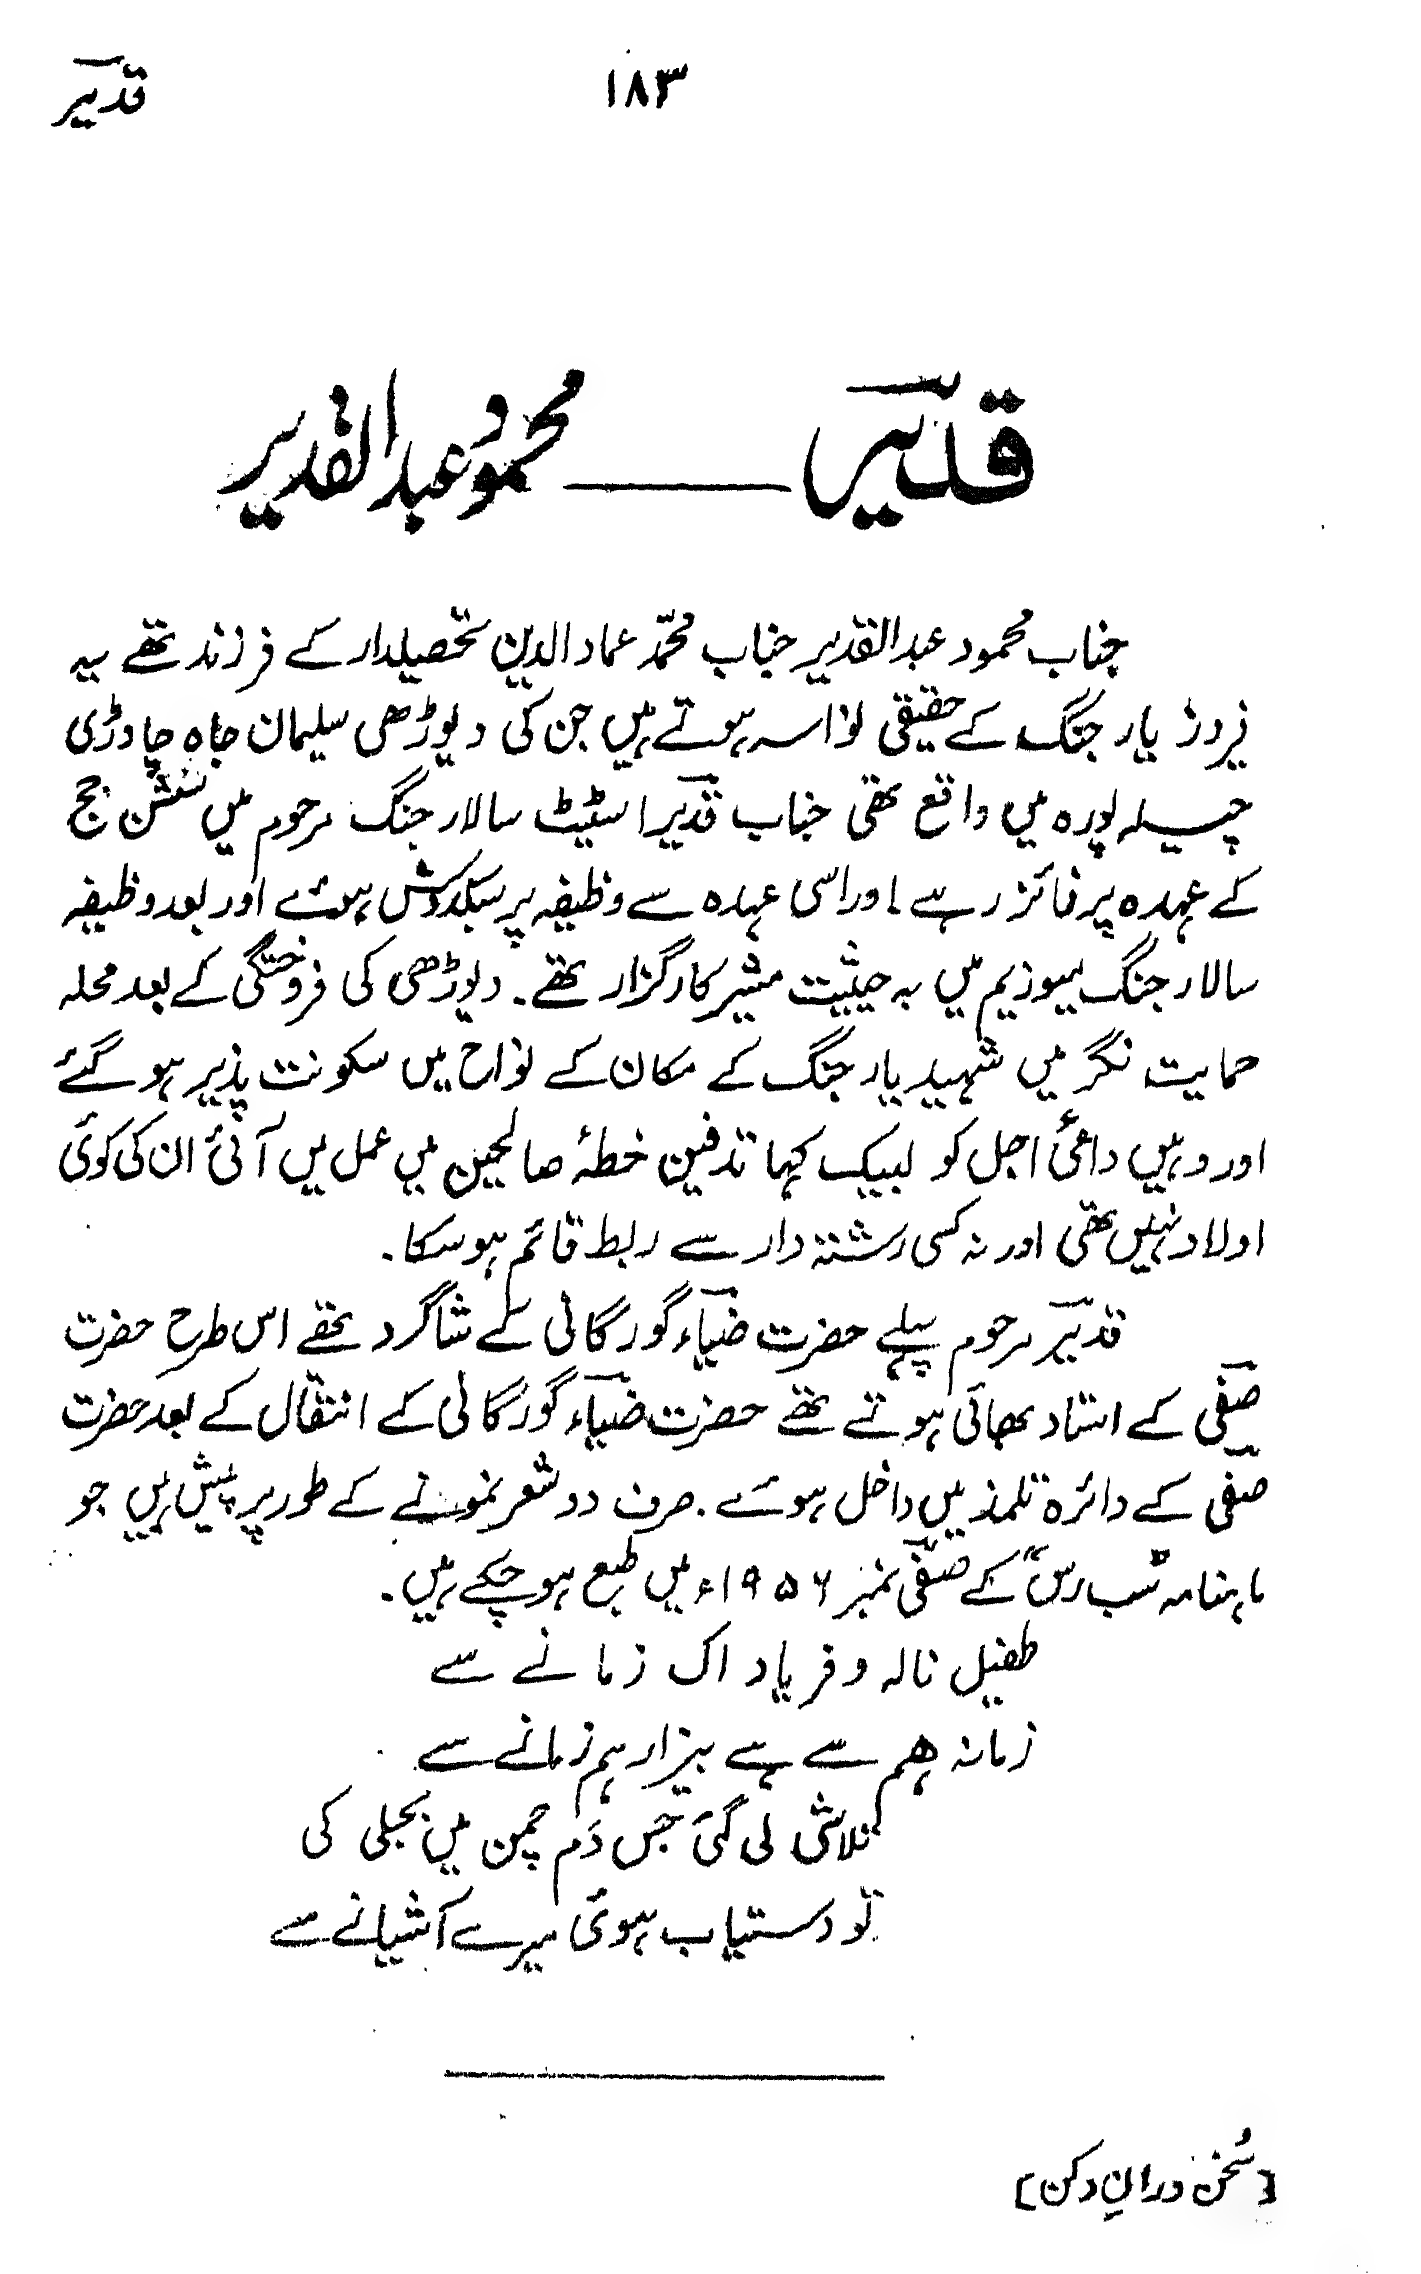 قدیرؔ
۱۸۳
قدیرؔ ــــــ محمود عبدالقدیر
جناب محمود عبدالقدیر جناب محمّد عماد الدین تحصیلدار کے فرزند تھے یہ
فیروز یار جنگ کے حقیقی نواسہ ہوتے ہیں جن کی دیوڑھی سلیمان جاہ چاوڑی
چیلہ پورہ میں واقع تھی جناب قدیرؔ اسٹیٹ سالار جنگ مرحوم میں سشن جج
کے عہدہ پر فائز رہے ۔ اور اسی عہدہ سے وظیفہ پر سبکدوش ہوئے اور بعد وظیفہ
سالار جنگ میوزیم میں بہ حیثیت مشیر کارگزار تھے ۔ دیوڑھی کی فروختگی کے بعد محلہ
حمایت نگر میں شہید یار جنگ کے مکان کے نواح میں سکونت پذیر ہو گئے
اور وہیں داعیٔ اجل کو لبیک کہا تدفین خطۂ صالحین میں عمل میں آئی ان کی کوئی
اولاد نہیں تھی اور نہ کسی رشتہ دار سے ربط قائم ہو سکا ۔
قدیرؔ مرحوم پہلے حضرت ضیاؔء گورگانی کے شاگرد تھے اس طرح حضرت
صفیؔ کے استاد بھائی ہوتے تھے حضرت ضیاؔء گورگانی کے انتقال کے بعد حضرت
صفیؔ کے دائرہ تلمذ میں داخل ہوئے ۔ صرف دو شعر نمونے کے طور پر پیش ہیں جو
ماہنامہ "سب رس" کے صفیؔ نمبر ۱۹۵۶ء میں طبع ہو چکے ہیں ۔
طفیل نالہ و فریاد اک زمانے سے
زمانہ ہم سے ہے بیزار ہم زمانے سے
تلاشی لی گئی جس دَم چمن میں بجلی کی
تو دستیاب ہوئی میرے آشیانے سے
[سُخن ورانِ دکن]